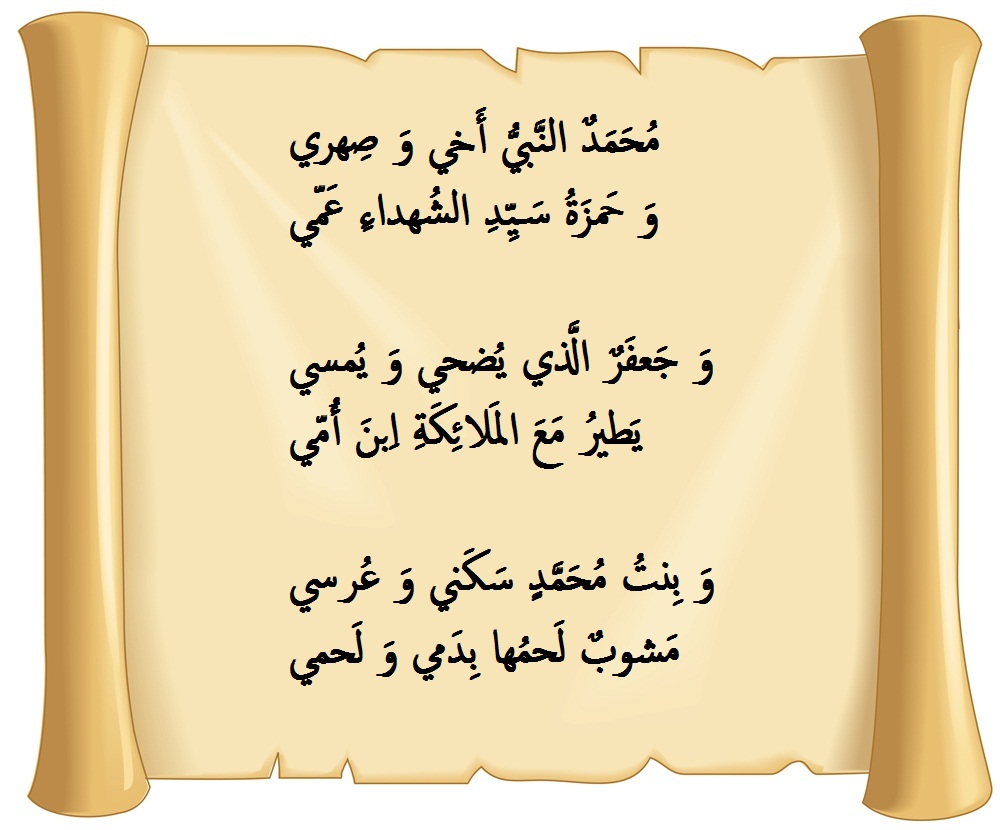 مُحَمَدٌ النَّبيُّ أَخي وَ صِهري
وَ حَمزَةُ سَيِّدِ الشُهداءِ عَمّي
وَ جَعفَرٌ الَّذي يُضحي وَ يُمسي
يَطيرُ مَعَ المَلائِكَةِ اِبنَ أُمّي
وَ بِنتُ مُحَمَّدٍ سَكَني وَ عُرسي
مَشوبٌ لَحمُها بِدَمي وَ لَحمي